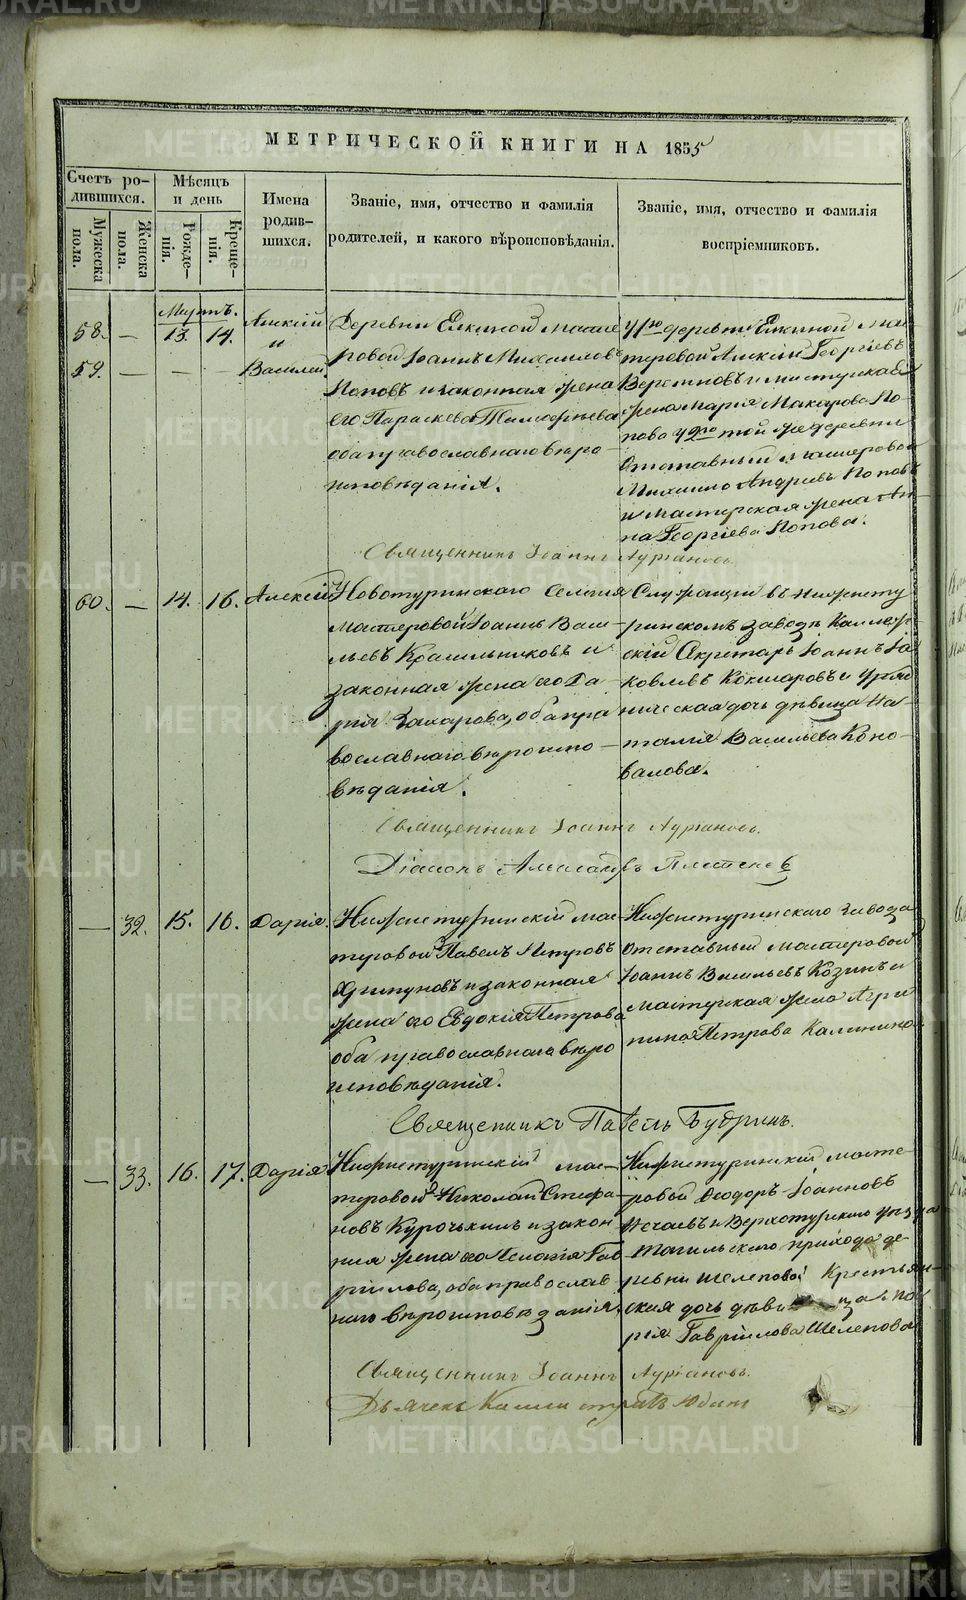 МЕТРИЧЕСКОЙ КНИГИ НА 1855
Счетъ ро-
дившихся.
Мужеска
пола.
Женска
пола.
Мѣсяцъ
и день
Рожде-
нія.
Креще-
нія.
Имена
родив-
шихся.
Званіе, имя, отчество и фамилія
родителей, и какого вѣроисповѣданія.
Званіе, имя, отчество и фамилія
воспріемниковъ.
Мартъ.
58. — 13. 14. Алексій
и
59. — — — Василій.
Деревни Елкиной масте
ровой Іоаннъ Михаиловъ
Поповъ и законная жена
его Параскева Тимофеева
оба православнаго вѣро
исповѣданія.
У 1го деревни Елкиной ма
стеровой Алексій Георгіевъ
Веремновъ и мастерская
жена Марія Макарова По
пова У 2го той же деревни
Отставный мастеровой
Михаило Андреевъ Поповъ
и мастерская жена Ан
на Георгіева Попова.
Священникъ Іоаннъ Адріановъ.
60. — 14. 16. Алексій
Новотуринскаго Селенія
мастеровой Іоаннъ Васи
льевъ Красильниковъ и
законная жена его Да
рія Захарова, оба пра
вославнаго вѣроиспо
вѣданія.
Служащій въ Нижнету
ринскомъ заводѣ Коллеж
скій Секретарь Іоаннъ Іа
ковлевъ Кокшаровъ и Уряд
ническая дочь дѣвица На
талія Васильева Коно
валова.
Священникъ Іоаннъ Адріановъ.
Діаконъ Александръ
— 32. 15. 16. Дарія.
Нижнетуринскій мас
теровой Павелъ Петровъ
Хрипуновъ и законная
жена его Евдокія Петрова
оба православнаго вѣро
исповѣданія.
Нижнетуринскаго завода
Отставный мастеровой
Іоаннъ Васильевъ Козинъ и
мастерская жена Агри
пина Петрова Калинина
Священникъ Павелъ Будринъ.
— 33. 16. 17. Дарія
Нижнетуринскій мас
теровой Николай Стефа
новъ Курочкинъ и закон
ная жена его Меланія Гав
риилова, оба православ
наго вѣроисповѣданія.
Нижнетуринскій масте
ровой Ѳеодоръ Іоанновъ
Нечаевъ и Верхотурскаго уѣзда
Тагильскаго прихода де
ревни Шелеповой Крестьян
ская дочь дѣвица Ма
рія Гавріилова Шелепова
Священникъ Іоаннъ Адріановъ.
Дьячекъ
METRIKI.GASO-URAL.RU